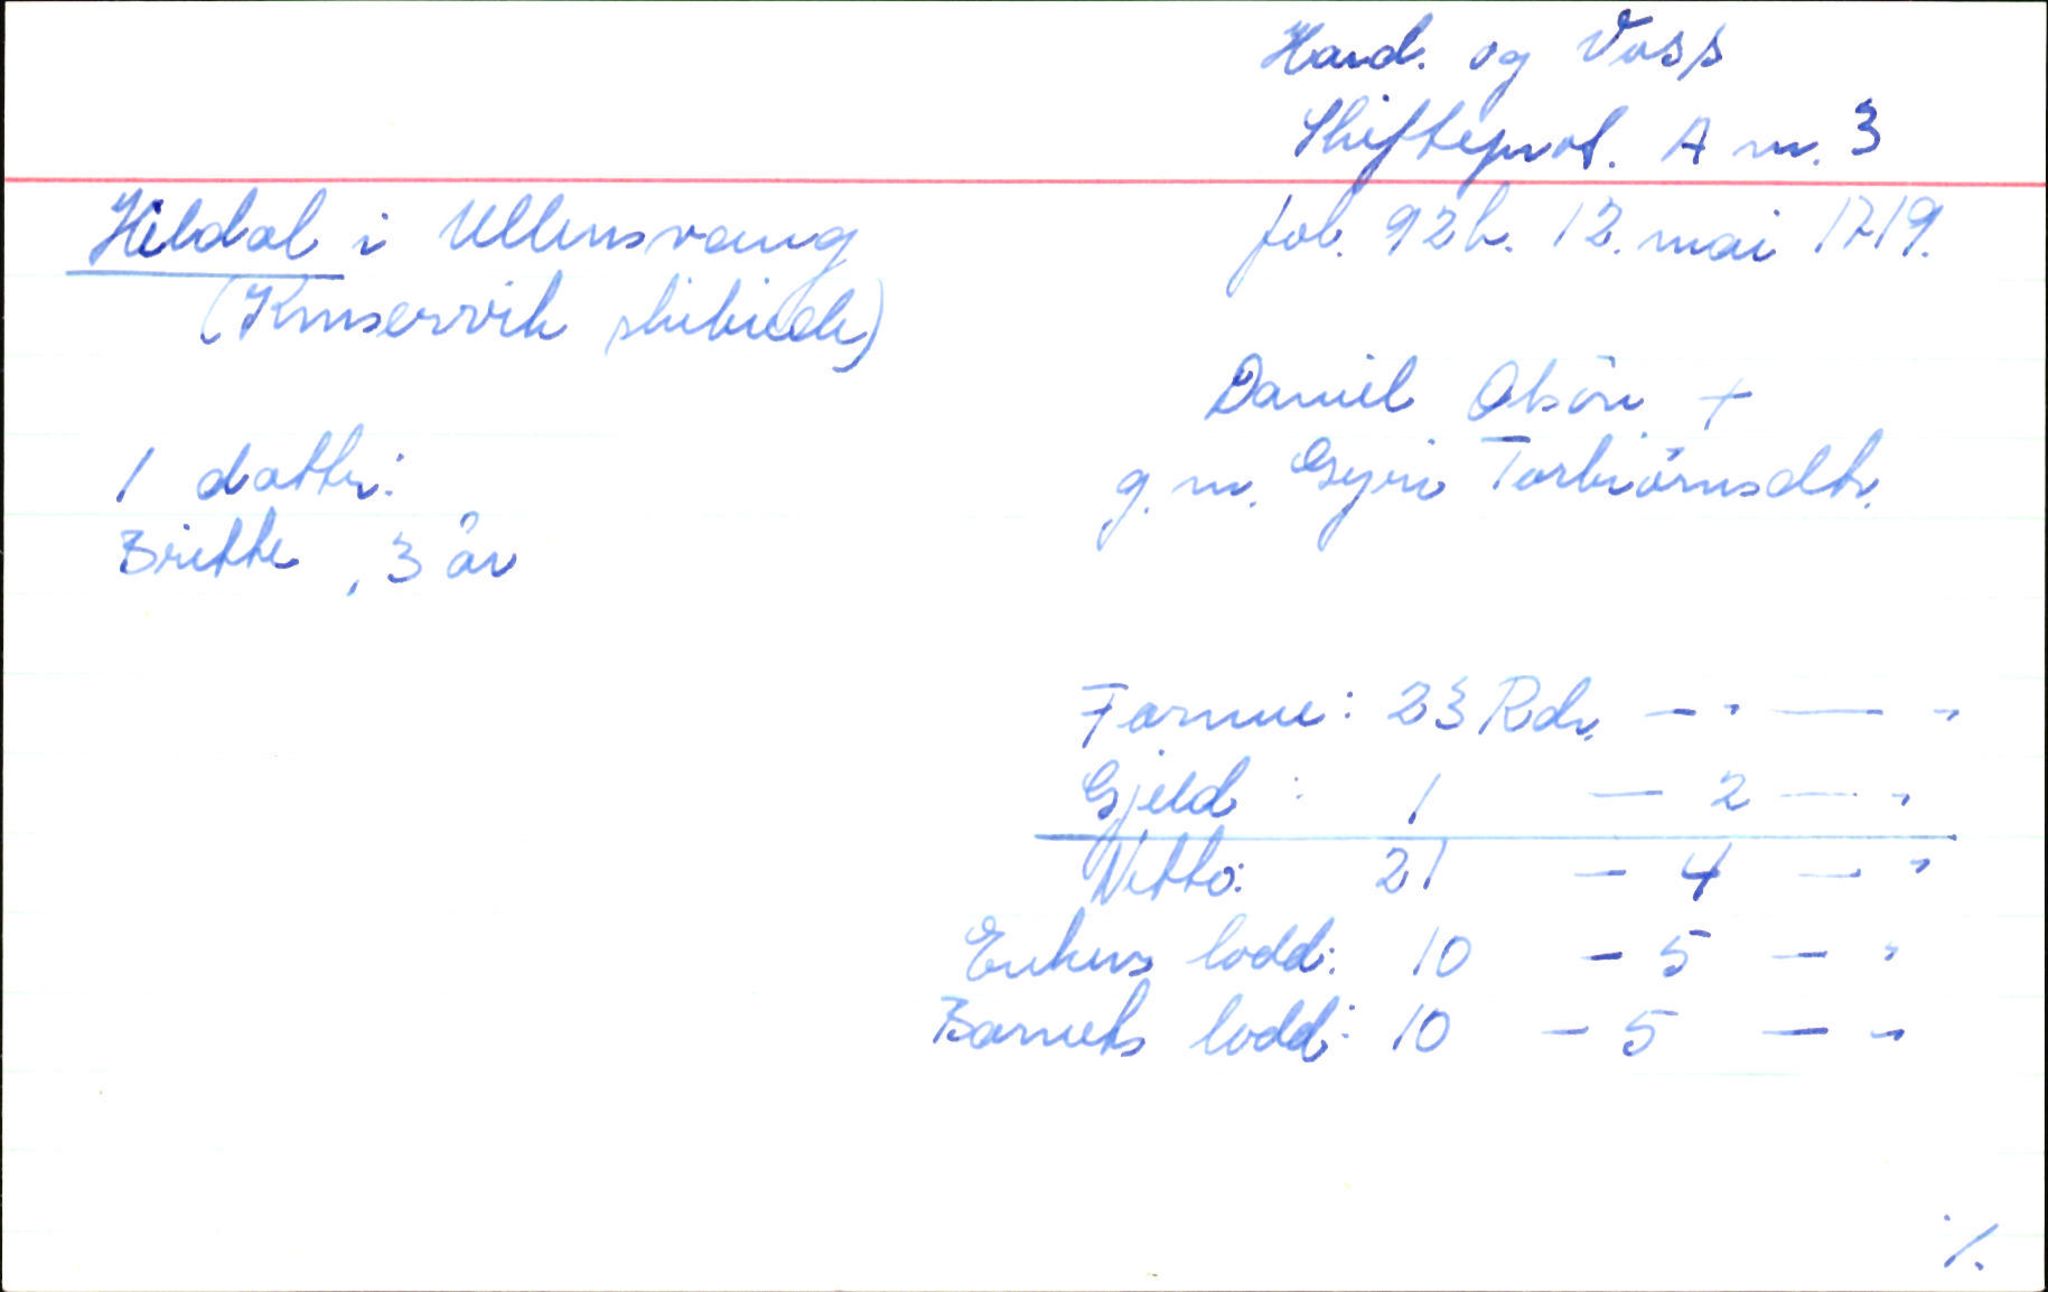 Hard. og Voss
Skifteprot. A nr. 3
fol. 92b. 12. mai 1719.
Hildal i Ullensvang
(Kinservik skibrede)
Daniel Olsön +
g. m. Gyri Torbiörnsdtr.
1 datter:
Britte, 3 år
Formue: 23 Rdr. — " — "
Gjeld : 1 — 2 — "
Netto: 21 — 4 — "
Enkens lodd: 10 — 5 — "
Barnets lodd: 10 — 5 — "
·/.